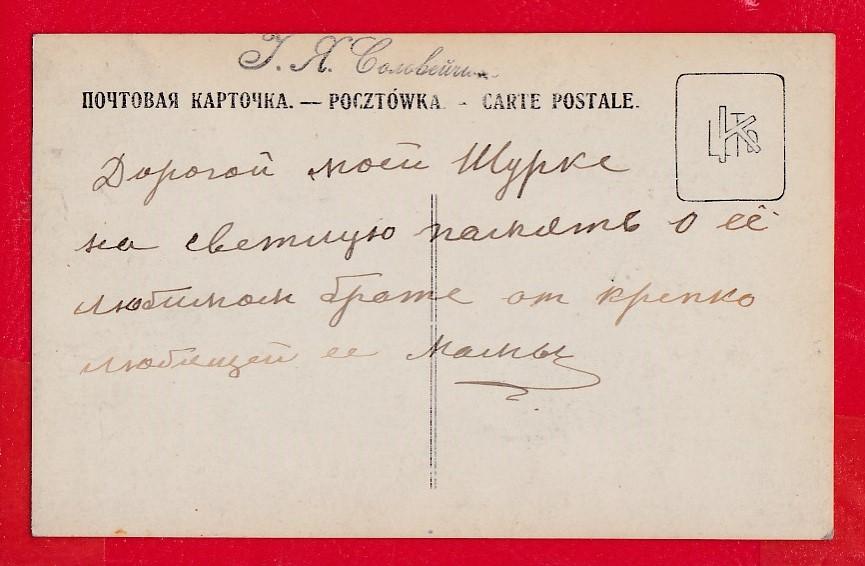 І. Я. Соловейчик
ПОЧТОВАЯ КАРТОЧКА. — POCZTÓWKA. - CARTE POSTALE.
Дорогой моей Шурке
на светлую память о её
любимом брате от крепко
любящей ее мамы